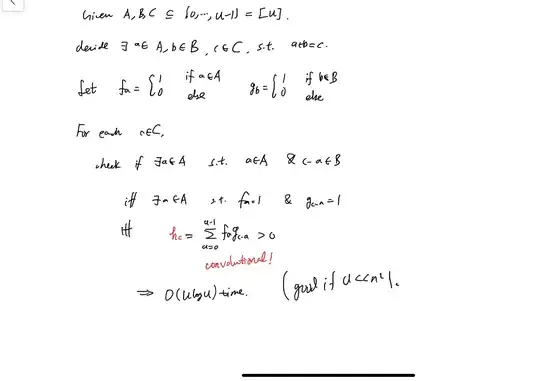 Given A, B, C ⊆ {0, ..., u-1} = [u].
decide ∃ a∈A, b∈B, c∈C, s.t. a+b=c.
Let f_a = { 1 if a∈A 0 else g_b = { 1 if b∈B 0 else
For each c∈C,
check if ∃a∈A s.t. a∈A & c-a∈B
iff ∃a∈A s.t. f_a=1 & g_{c-a}=1
iff h_c = Σ_{a=0}^{u-1} f_a g_{c-a} > 0
convolutional!
⇒ O(u log u) time. (good if u << n²).